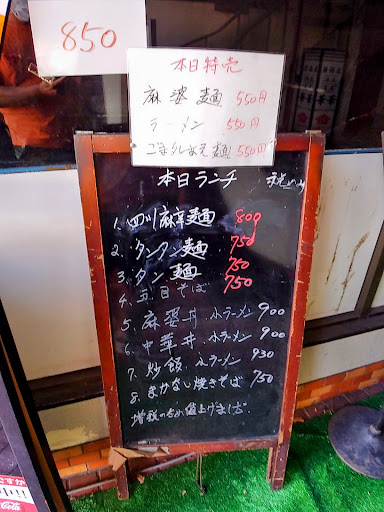 850
本日特売
麻婆麺 550円
ラーメン 550円
ごまひしあえ麺 550円
本日ランチ 税込み
1. 四川麻辛麺 800
2. タンタン麺 750
3. タン麺 750
4. 五目そば 750
5. 麻婆丼 小ラーメン 900
6. 中華丼 小ラーメン 900
7. 炒飯 小ラーメン 930
8. まかない焼きそば 750
増税のため値上げします。